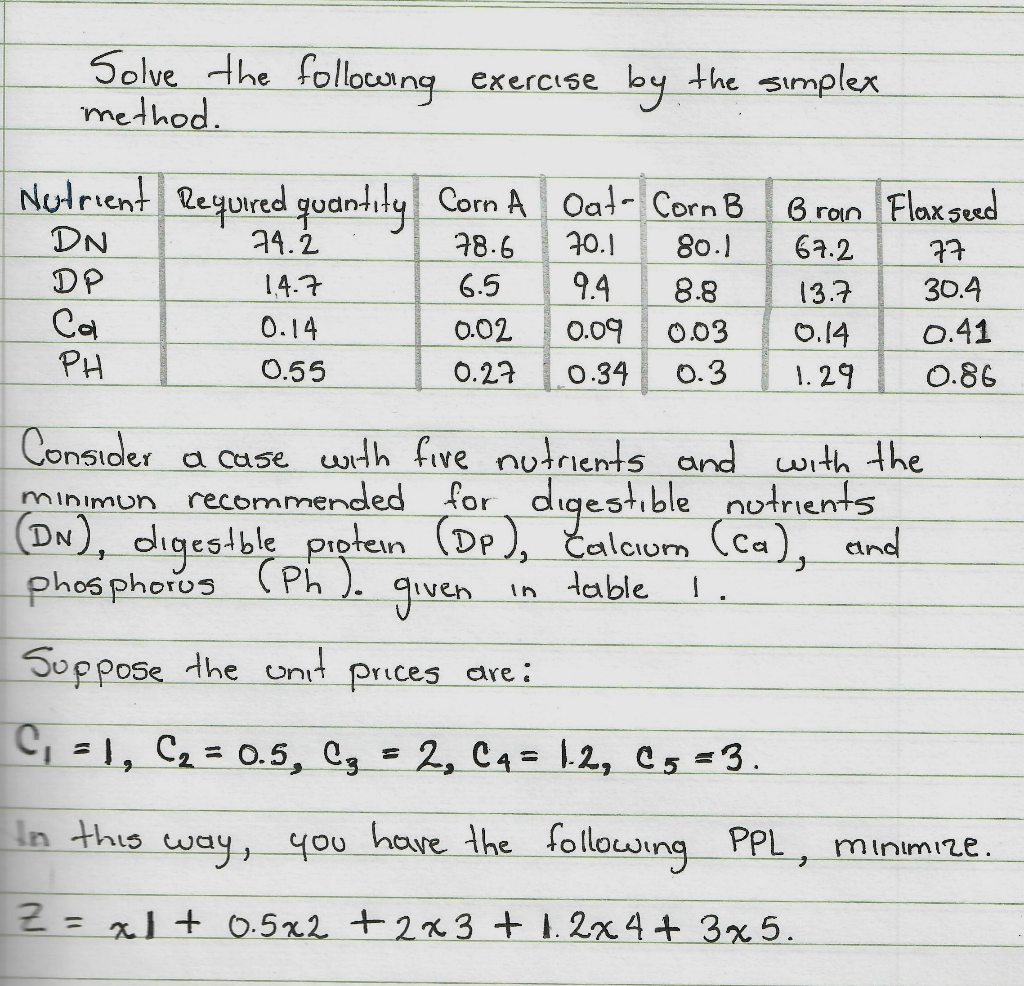 Solve the following exercise by the simplex
method.
Nutrient Required quantity Corn A Oat- Corn B Bran Flaxseed
DN 74.2 78.6 70.1 80.1 67.2 77
DP 14.7 6.5 9.4 8.8 13.7 30.4
Ca 0.14 0.02 0.09 0.03 0.14 0.41
PH 0.55 0.27 0.34 0.3 1.29 0.86
Consider a case with five nutrients and with the
minimun recommended for digestible nutrients
(DN), digestble protein (DP), Calcium (Ca), and
phosphorus (Ph). given in table 1.
Suppose the unit prices are:
C₁ = 1, C₂ = 0.5, C₃ = 2, C₄ = 1.2, C₅ = 3.
In this way, you have the following PPL, minimize.
Z = x1 + 0.5x2 + 2x3 + 1.2x4 + 3x5.